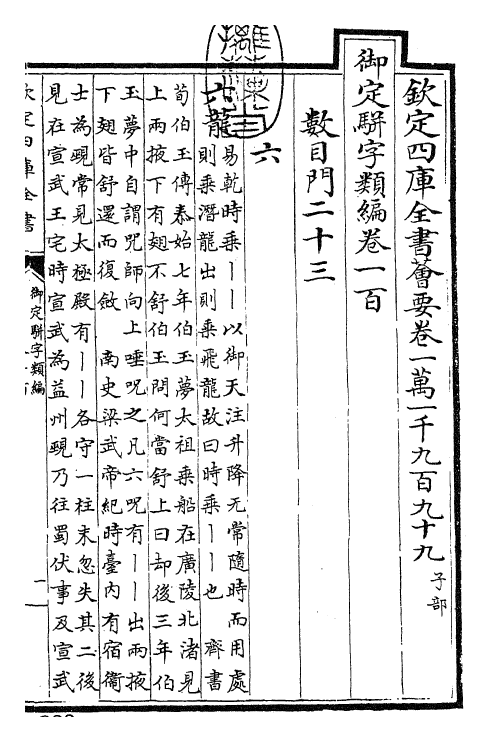 欽定四庫全書薈要卷一萬一千九百九十九 子部
御定駢字類編卷一百
數目門二十三
六
六龍 易乾時乘丨丨以御天注升降无常隨時而用處
則乘潛龍出則乘飛龍故曰時乘丨丨也 齊書
荀伯玉傳泰始七年伯玉夢太祖乘船在廣陵北渚見
上兩掖下有翅不舒伯玉問何當舒上曰却後三年伯
玉夢中自謂咒師向上唾咒之凡六咒有丨丨出兩掖
下翅皆舒還而復斂 南史梁武帝紀時臺內有宿衛
士為覡常見太極殿有丨丨各守一柱末忽失其二後
見在宣武王宅時宣武為益州覡乃往蜀伏事及宣武
欽定四庫全書
御定駢字類編
一